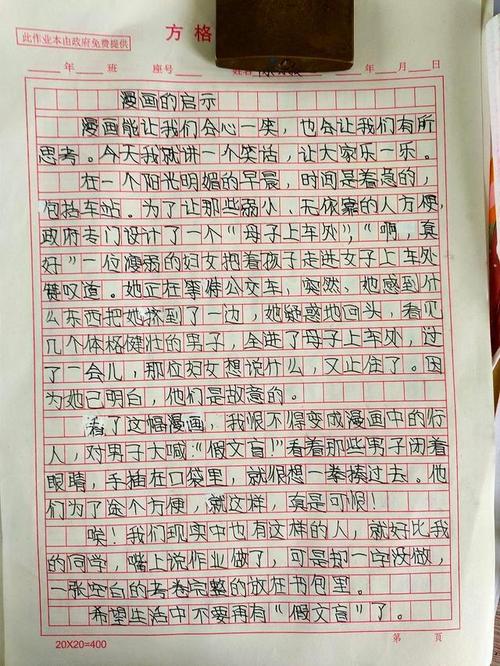 此作业本由政府免费提供
方格
年 班 座号 年 月 日
漫画的启示
漫画能让我们会心一笑，也会让我们有所
思考。今天我就讲一个笑话，让大家乐一乐。
在一个阳光明媚的早晨，时间是着急的，
包括车站。为了让那些弱小、无依靠的人方便，
政府专门设计了一个“母子上车处”，“啊，真
好”一位瘦弱的妇女抱着孩子走进女子上车处
赞叹道。她正在等待公交车，突然、她感到什
么东西把她挤到了一边，她疑惑地回头，看见
几个体格健壮的男子，全进了母子上车处，过
了一会儿，那位妇女想说什么，又止住了。因
为她已明白，他们是故意的。
看了这幅漫画，我恨不得变成漫画中的行
人，对男子大喊：“假文盲！”看着那些男子闭着
眼睛，手插在口袋里，就很想一拳揍过去。他
们为了途个方便，就这样，真是可恨！
唉！我们现实中也有这样的人，就好比我
的同学，嘴上说作业做了，可是却一字没做，
一张空白的考卷完整的放在书包里。
希望生活中不要再有“假文盲”了。
20X20=400
第 页